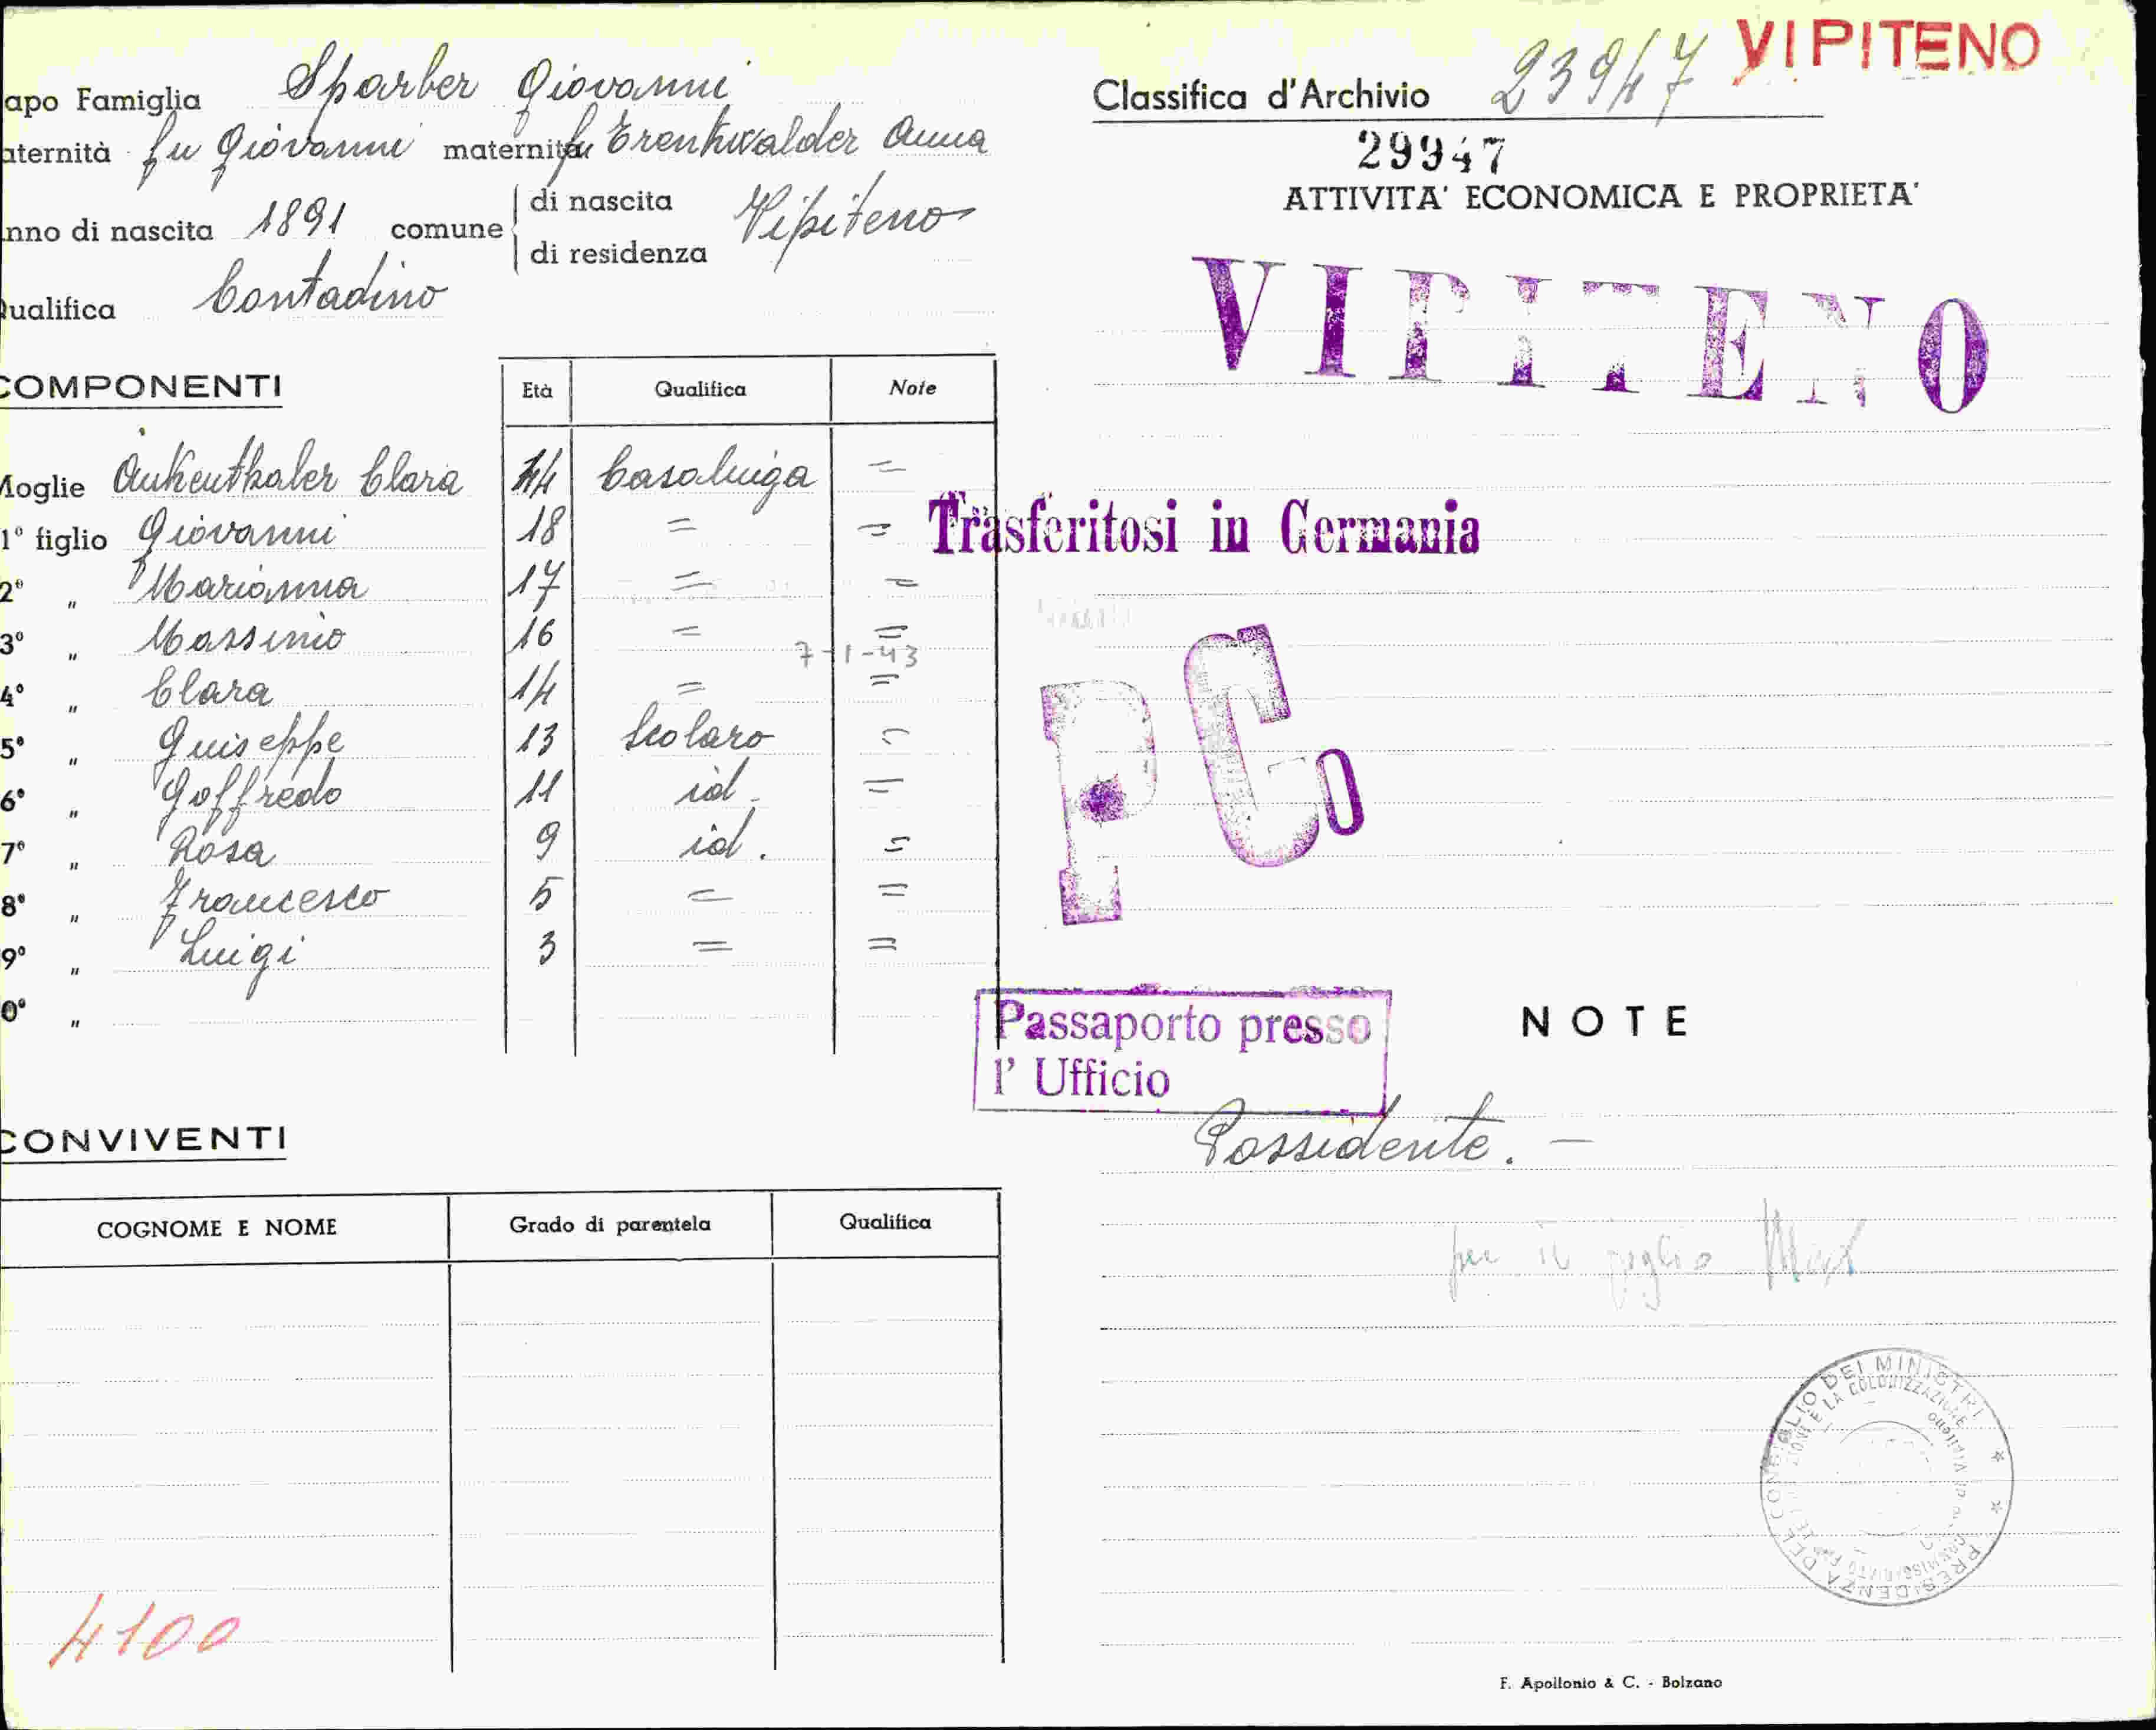 apo Famiglia Sparber Giovanni
aternità fu Giovanni maternità fu Trenkwalder Anna
nno di nascita 1891 comune di nascita Vipiteno
di residenza
ualifica Contadino
COMPONENTI Età Qualifica Note
Moglie Aukenthaler Clara 44 Casalniga =
1° figlio Giovanni 18 = =
2° " Marianna 17 = =
3° " Massimo 16 = =
7-1-43
4° " Clara 14 = =
5° " Guiseppe 13 Scolaro =
6° " Goffredo 11 id. =
7° " Rosa 9 id. =
8° " Francesco 5 = =
9° " Luigi 3 = =
0° "
CONVIVENTI
COGNOME E NOME Grado di parentela Qualifica
4100
VIPITENO
Classifica d'Archivio 23947
29947
ATTIVITA' ECONOMICA E PROPRIETA'
VIPITENO
Trasferitosi in Germania
PC.
Passaporto presso
l' Ufficio
NOTE
Possidente. —
per il figlio Max
PRESIDENZA DEL CONSIGLIO DEI MINISTRI
F. Apollonio & C. - Bolzano